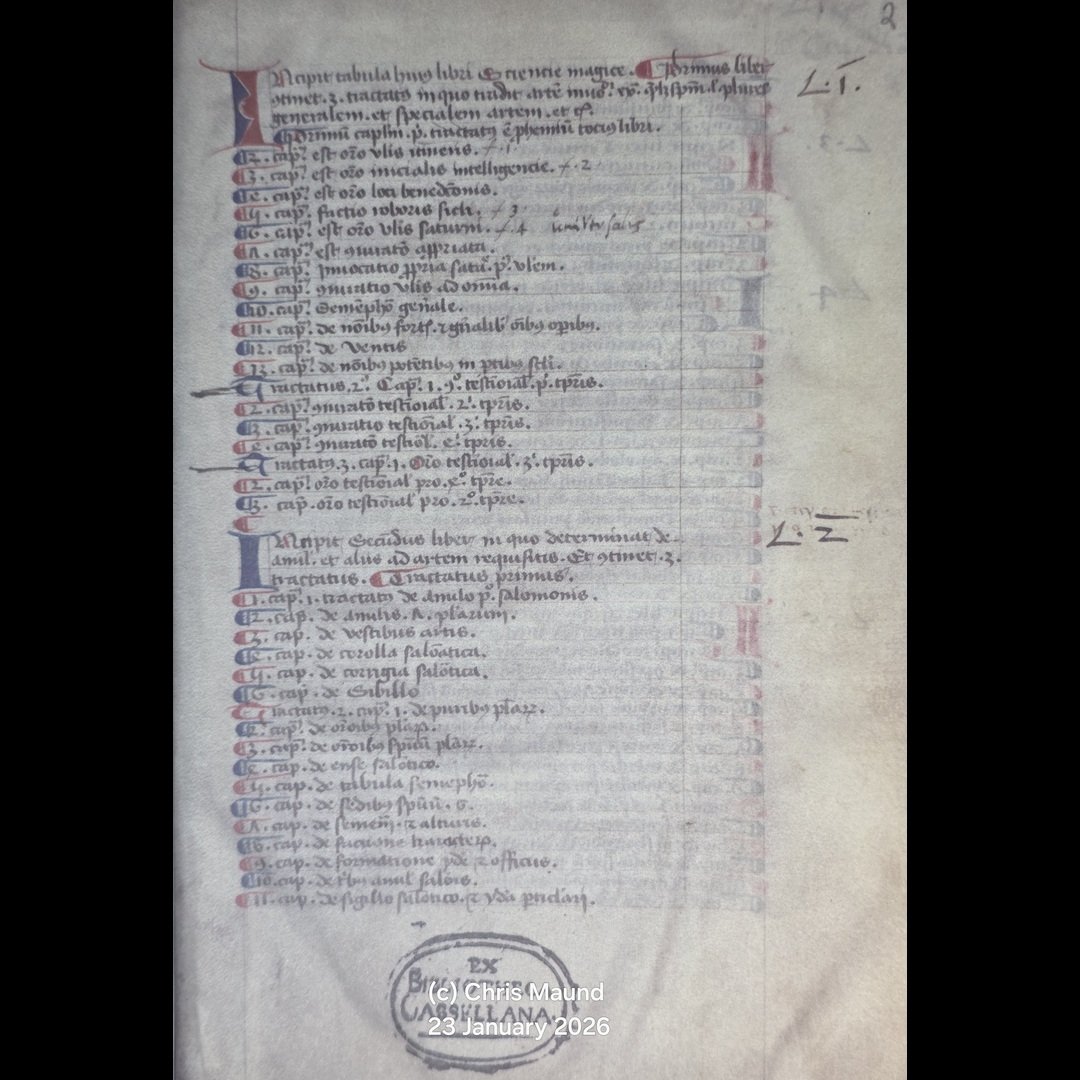 2
Incipit tabula huiꝰ libri Sciencie magice. Primus liber
L. 1.
ꝯtinet .3. tractatꝰ in quo tradit artē
generalem. et specialem artem. et
Primū caplm .p. tractatꝰ ē phemiū tociꝰ libri.
2. cap. est orō vlis itinens. f. 1
3. cap. est orō inicialis intelligencie. f. 2
4. cap. est orō loci benedcōnis.
5. cap. factio roboris sicli. f. 3
6. cap. est orō vlis saturni. f. 4
7. cap. est ꝯiuratō appriata.
8. cap. Inuocatio ppria satu. p. vlem.
9. cap. ꝯiuratio vlis ad omnia.
10. cap. Semēphoꝝ gēnale.
11. cap. de nōibꝰ fort. ⁊ gñalibꝰ oībꝰ opibꝰ.
12. cap. de ventis
13. cap. de nōibꝰ potētibꝰ in ptibꝰ scli.
Tractatus .2. Cap. 1. testīoial. p. tpris.
2. cap. ꝯiuratō testīoial. 2. tpris.
3. cap. ꝯiuratio testīoial. 3. tpris.
4. cap. ꝯiuratō testīol. 4. tpris.
Tractatꝰ .3. cap. 1. Orō testīoial. 3. tpris.
2. cap. orō testīoial pro . tpre.
3. cap. orō testīoial pro .2. tpre.
Incipit Secūdus liber in quo determinat de
L. 2
anul. et aliis ad artem requisitis. Et ꝯtinet .2.
tractatus. Tractatus primus.
1. cap. 1. tractatꝰ de anulo p. salomonis.
2. cap. de anulis .7. plarum.
3. cap. de vestibus artis.
4. cap. de corolla salōatica.
5. cap. de corrigia salōtica.
6. cap. de Sibillo
Tractatꝰ .2. cap. 1. de ptibus plaꝝ.
2. cap. de orōibꝰ plaꝝ.
3. cap. de orōibꝰ spūū plaꝝ.
4. cap. de ense salōtico.
5. cap. de tabula semephō.
6. cap. de sedibꝰ spūū. 6.
7. cap. de ⁊ alturis.
8. cap. de factione karacterꝝ.
9. cap. de formatione yde ⁊ officiis.
10. cap. de anul salōis.
11. cap. de sigillo salōtico. ⁊ yda pticlari.
EX
BIBLIOTHECA
CASSELLANA.
(c) Chris Maund
23 January 2026